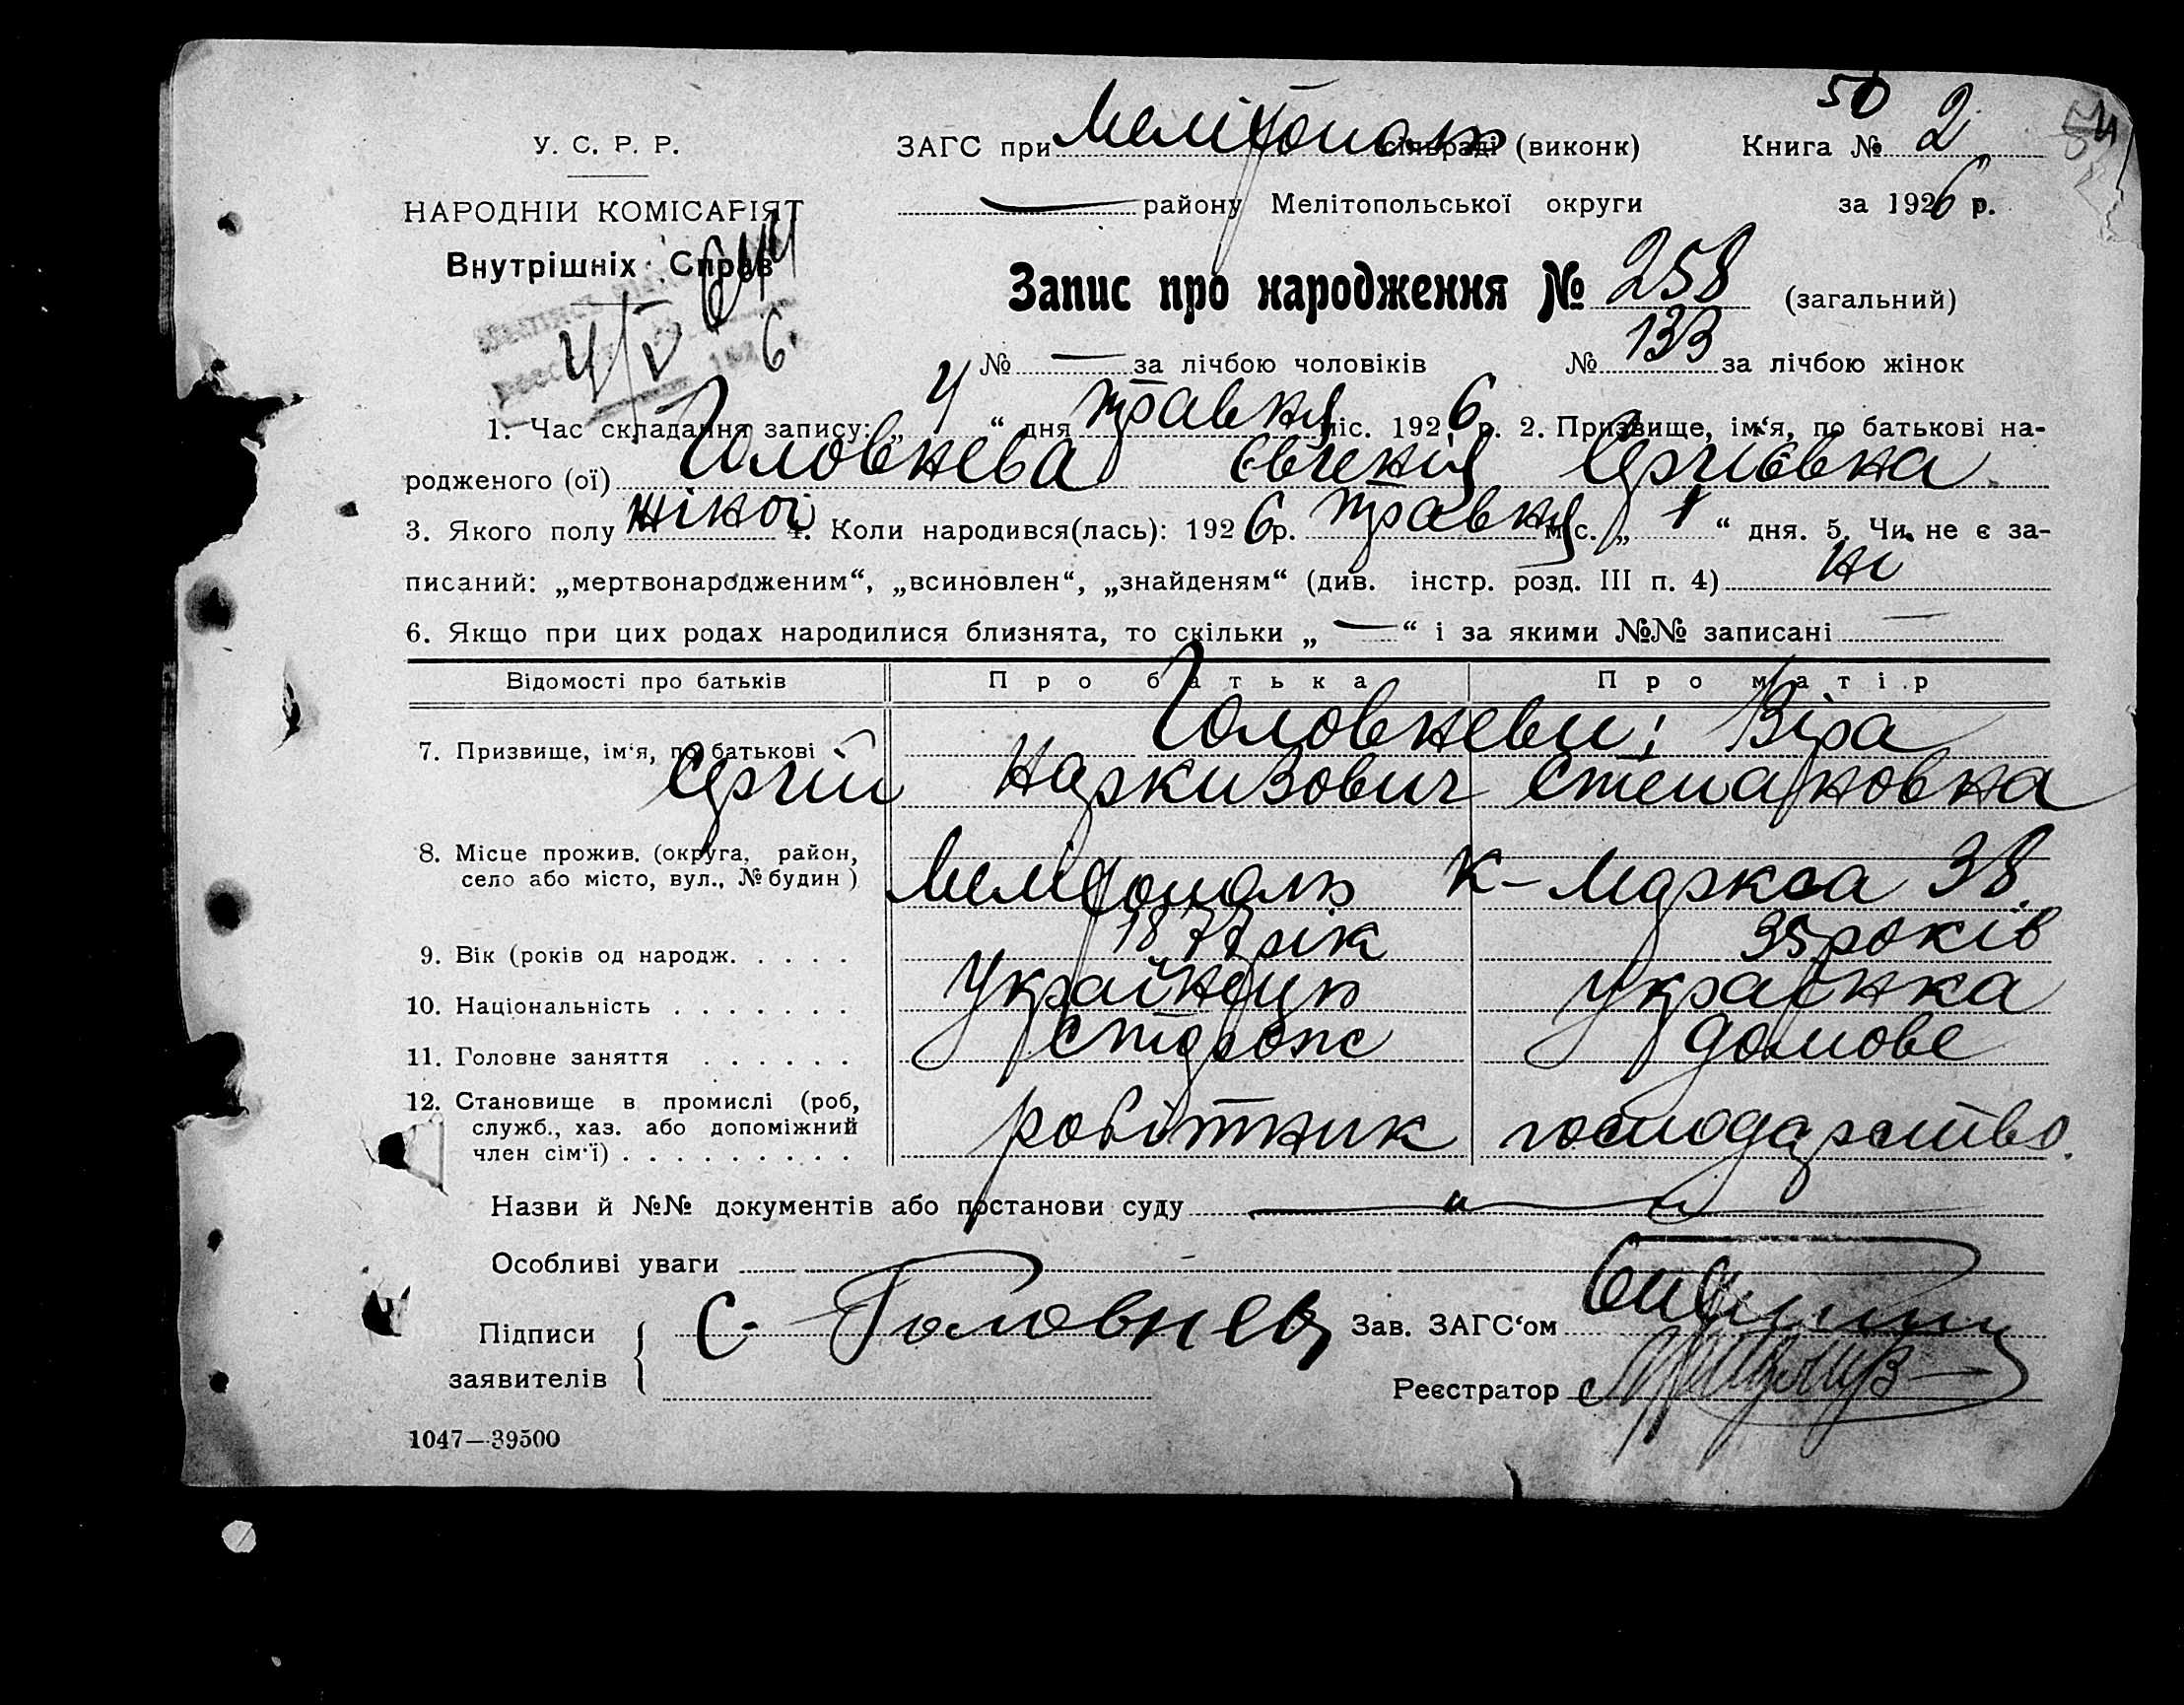 50
У. С. Р. Р.
ЗАГС при Мелітополь сільраді (виконк) Книга № 2
НАРОДНІЙ КОМІСАРІЯТ
району Мелітопольської округи за 1926 р.
Внутрішніх Справ
644
Запис про народження № 258 (загальний)
4/V 6.
№ — за лічбою чоловіків № 133 за лічбою жінок
1. Час складання запису: „ 4 “ дня травня міс. 1926 р. 2. Призвище, ім‘я, по батькові на-
родженого (ої) Головнева Євгенія Сергіевна
3. Якого полу жіноі 4. Коли народився(лась): 1926 р. травня міс. „ 1 “ дня. 5. Чи не є за-
писаний: „мертвонародженим“, „всиновлен“, „знайденям“ (див. інстр. розд. III п. 4) ні
6. Якщо при цих родах народилися близнята, то скільки „ — “ і за якими №№ записані —
Відомості про батьків Про батька Про матір
7. Призвище, ім‘я, по батькові Головневи: Віра
Сергій Наркизович Степановна
8. Місце прожив. (округа, район,
село або місто, вул., № будин) Мелітополь К-Маркса 38.
9. Вік (років од народж. . . . . 1877 рік 35 років
10. Національність . . . . . . . Українець українка
11. Головне заняття . . . . . . сторож домове
12. Становище в промислі (роб,
служб., хаз. або допоміжний робітник господарство.
член сім‘ї) . . . . . . . . .
Назви й №№ документів або постанови суду
Особливі уваги
Підписи С. Головнев Зав. ЗАГС‘ом
заявителів Реєстратор
1047—39500